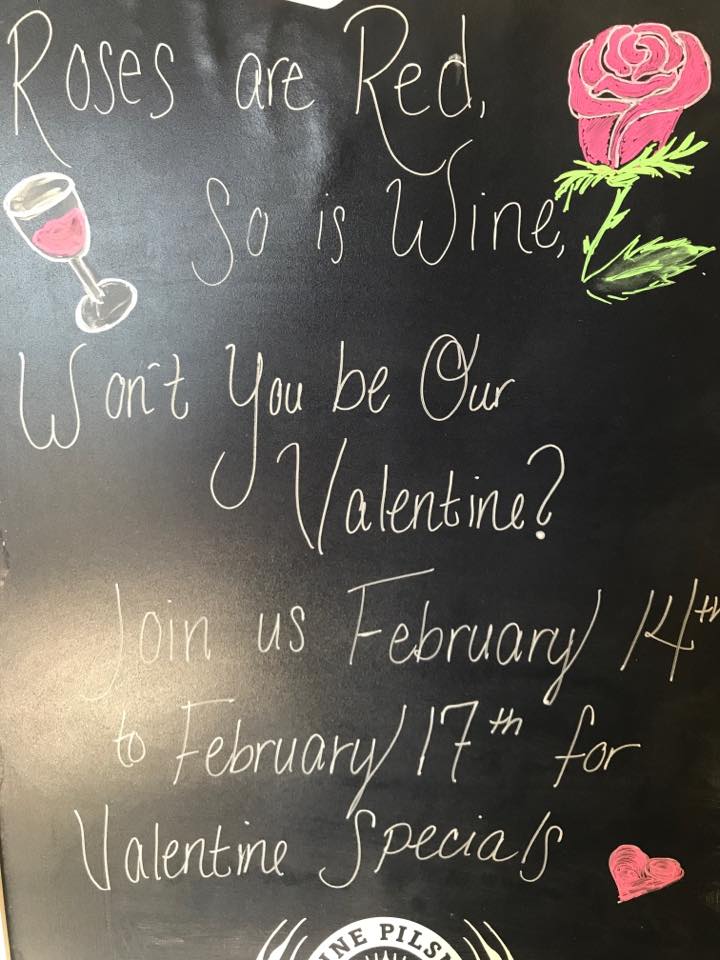 Roses are Red,
So is Wine,
Won't You be Our
Valentine?
Join us February 14th
to February 17th for
Valentine Specials